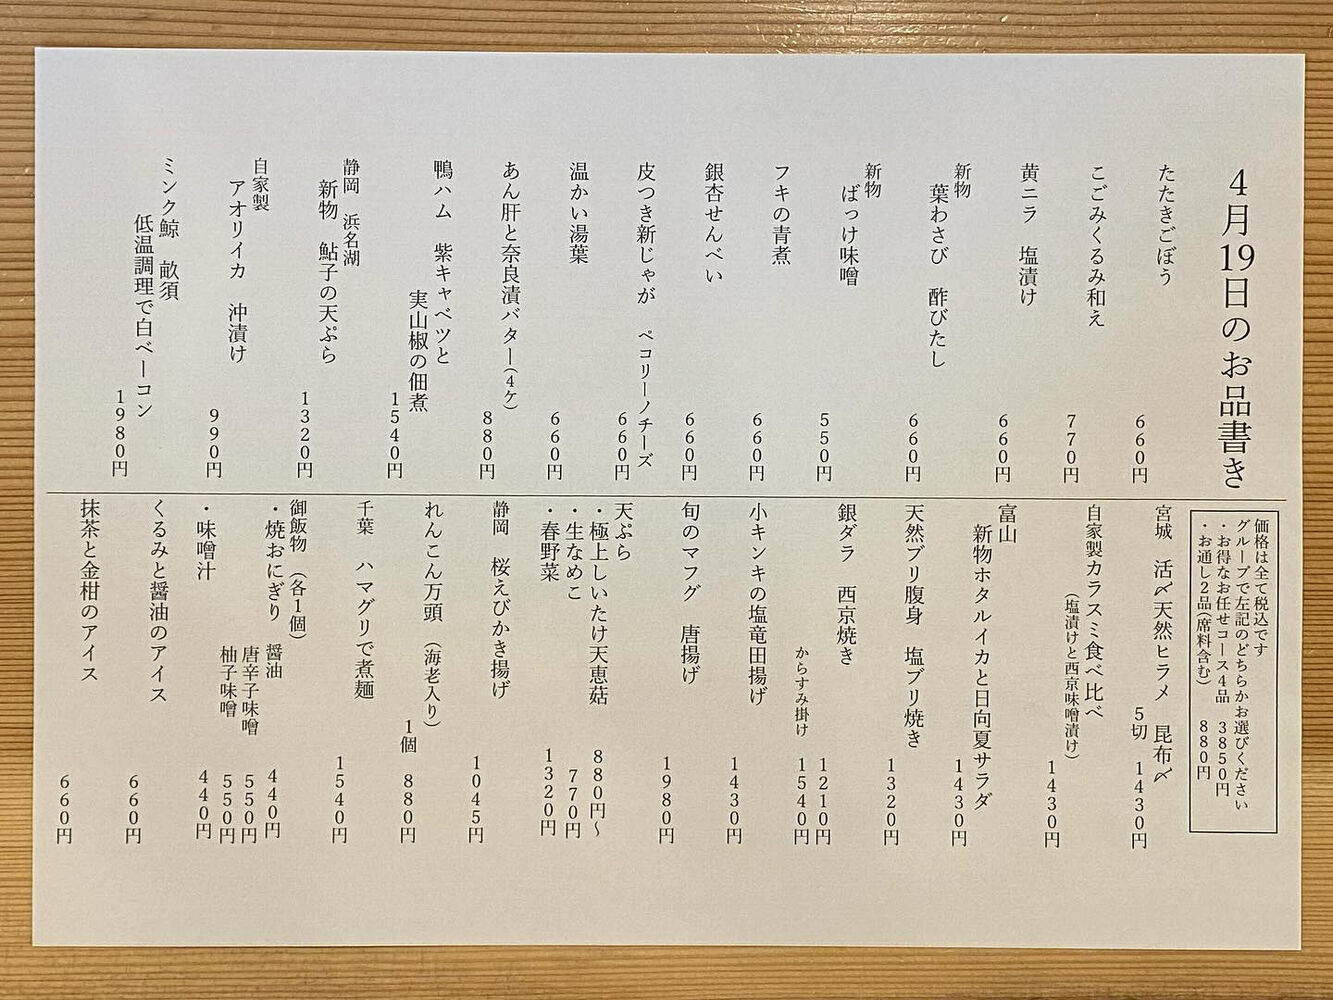 4月19日のお品書き
たたきごぼう
660円
こごみくるみ和え
770円
黄ニラ 塩漬け
660円
新物
葉わさび 酢びたし
660円
新物
ばっけ味噌
550円
フキの青煮
660円
銀杏せんべい
660円
皮つき新じゃが ペコリーノチーズ
660円
温かい湯葉
660円
あん肝と奈良漬バター(4ケ)
880円
鴨ハム 紫キャベツと
実山椒の佃煮
1540円
静岡 浜名湖
新物 鮎子の天ぷら
1320円
自家製
アオリイカ 沖漬け
990円
ミンク鯨 畝須
低温調理で白ベーコン
1980円
価格は全て税込です
グループで左記のどちらかお選びください
・お得なお任せコース4品 3850円
・お通し2品(席料含む) 880円
宮城 活〆天然ヒラメ 昆布〆
5切 1430円
自家製カラスミ食べ比べ
(塩漬けと西京味噌漬け)
1430円
富山
新物ホタルイカと日向夏サラダ
1430円
天然ブリ腹身 塩ブリ焼き
1320円
銀ダラ 西京焼き
1210円
からすみ掛け 1540円
小キンキの塩竜田揚げ
1430円
旬のマフグ 唐揚げ
1980円
天ぷら
・極上しいたけ天恵菇 880円~
・生なめこ 770円
・春野菜 1320円
静岡 桜えびかき揚げ
1045円
れんこん万頭 (海老入り)
1個 880円
千葉 ハマグリで煮麺
1540円
御飯物 (各1個)
・焼おにぎり 醤油 440円
唐辛子味噌 550円
柚子味噌 550円
・味噌汁 440円
くるみと醤油のアイス
660円
抹茶と金柑のアイス
660円